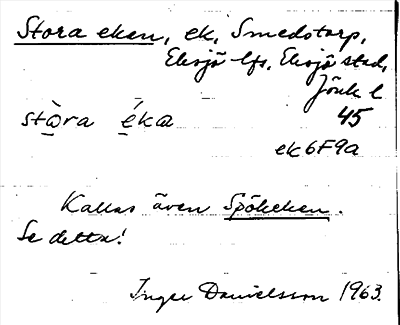 Stora eken, ek, Smedstorp,
Eksjö lfs, Eksjö stad,
Jönk l
45
stò̱ra é̱ka
ek 6F9a
Kallas även Spökeken.
Se detta!
Inger Danielsson 1963.